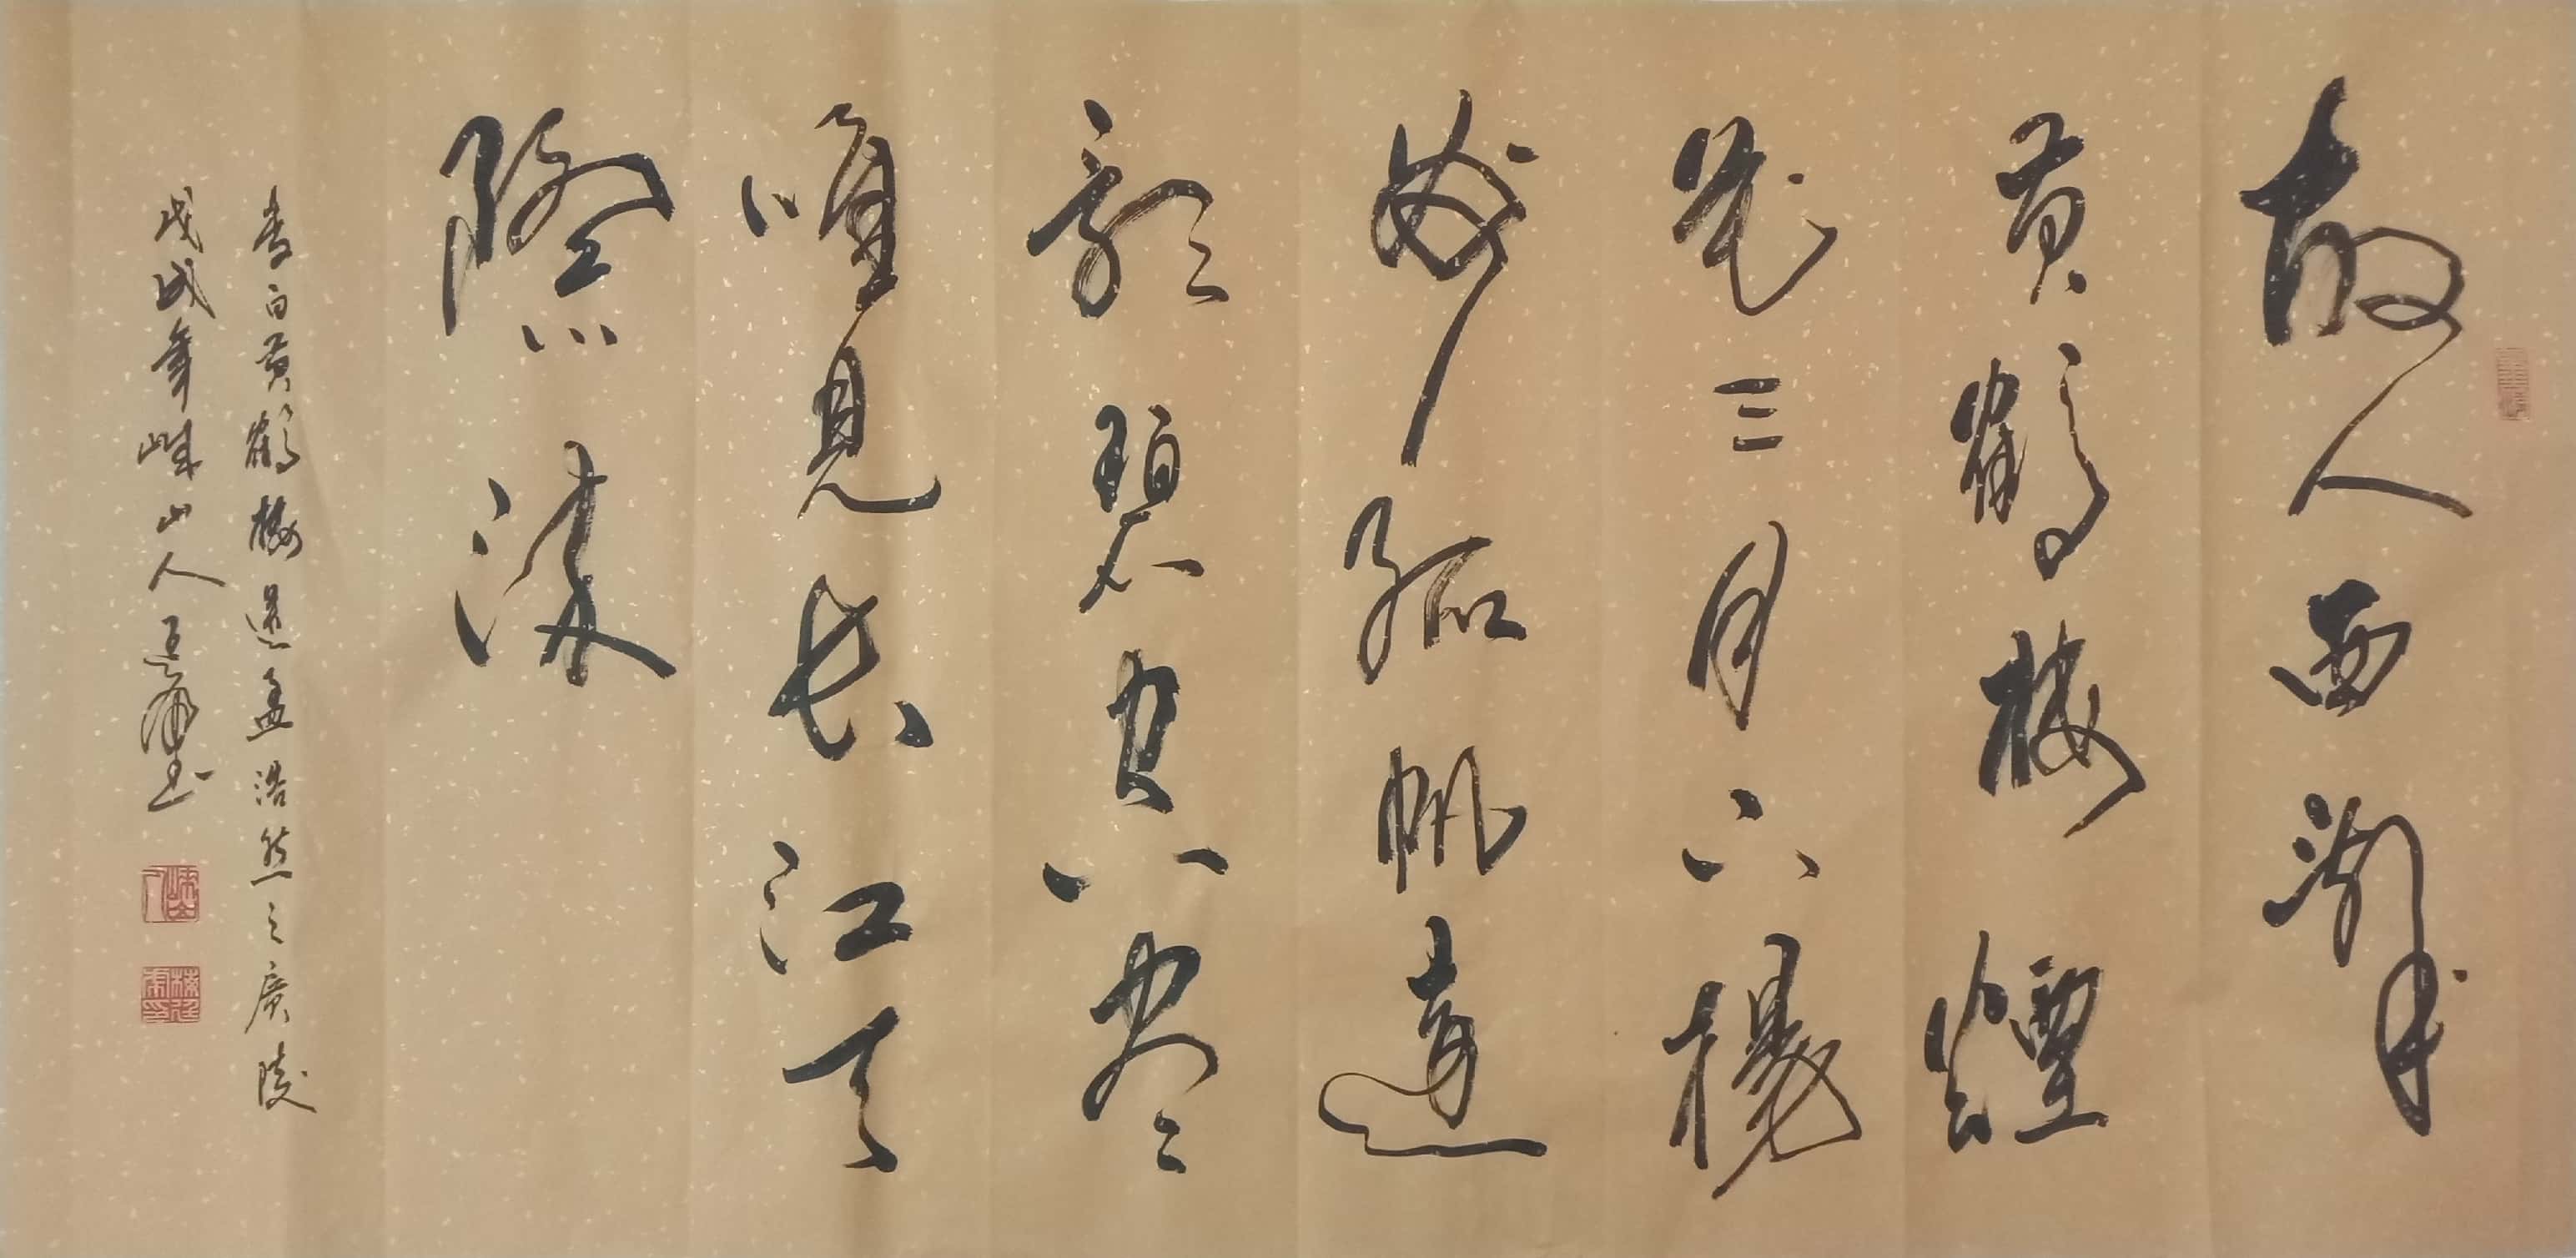 故人西辭
黄鶴樓煙
花三月下楊
州孤帆遠
影碧空尽
唯見長江天
際流
李白黄鶴樓送孟浩然之廣陵
戊戌年嵊山人书